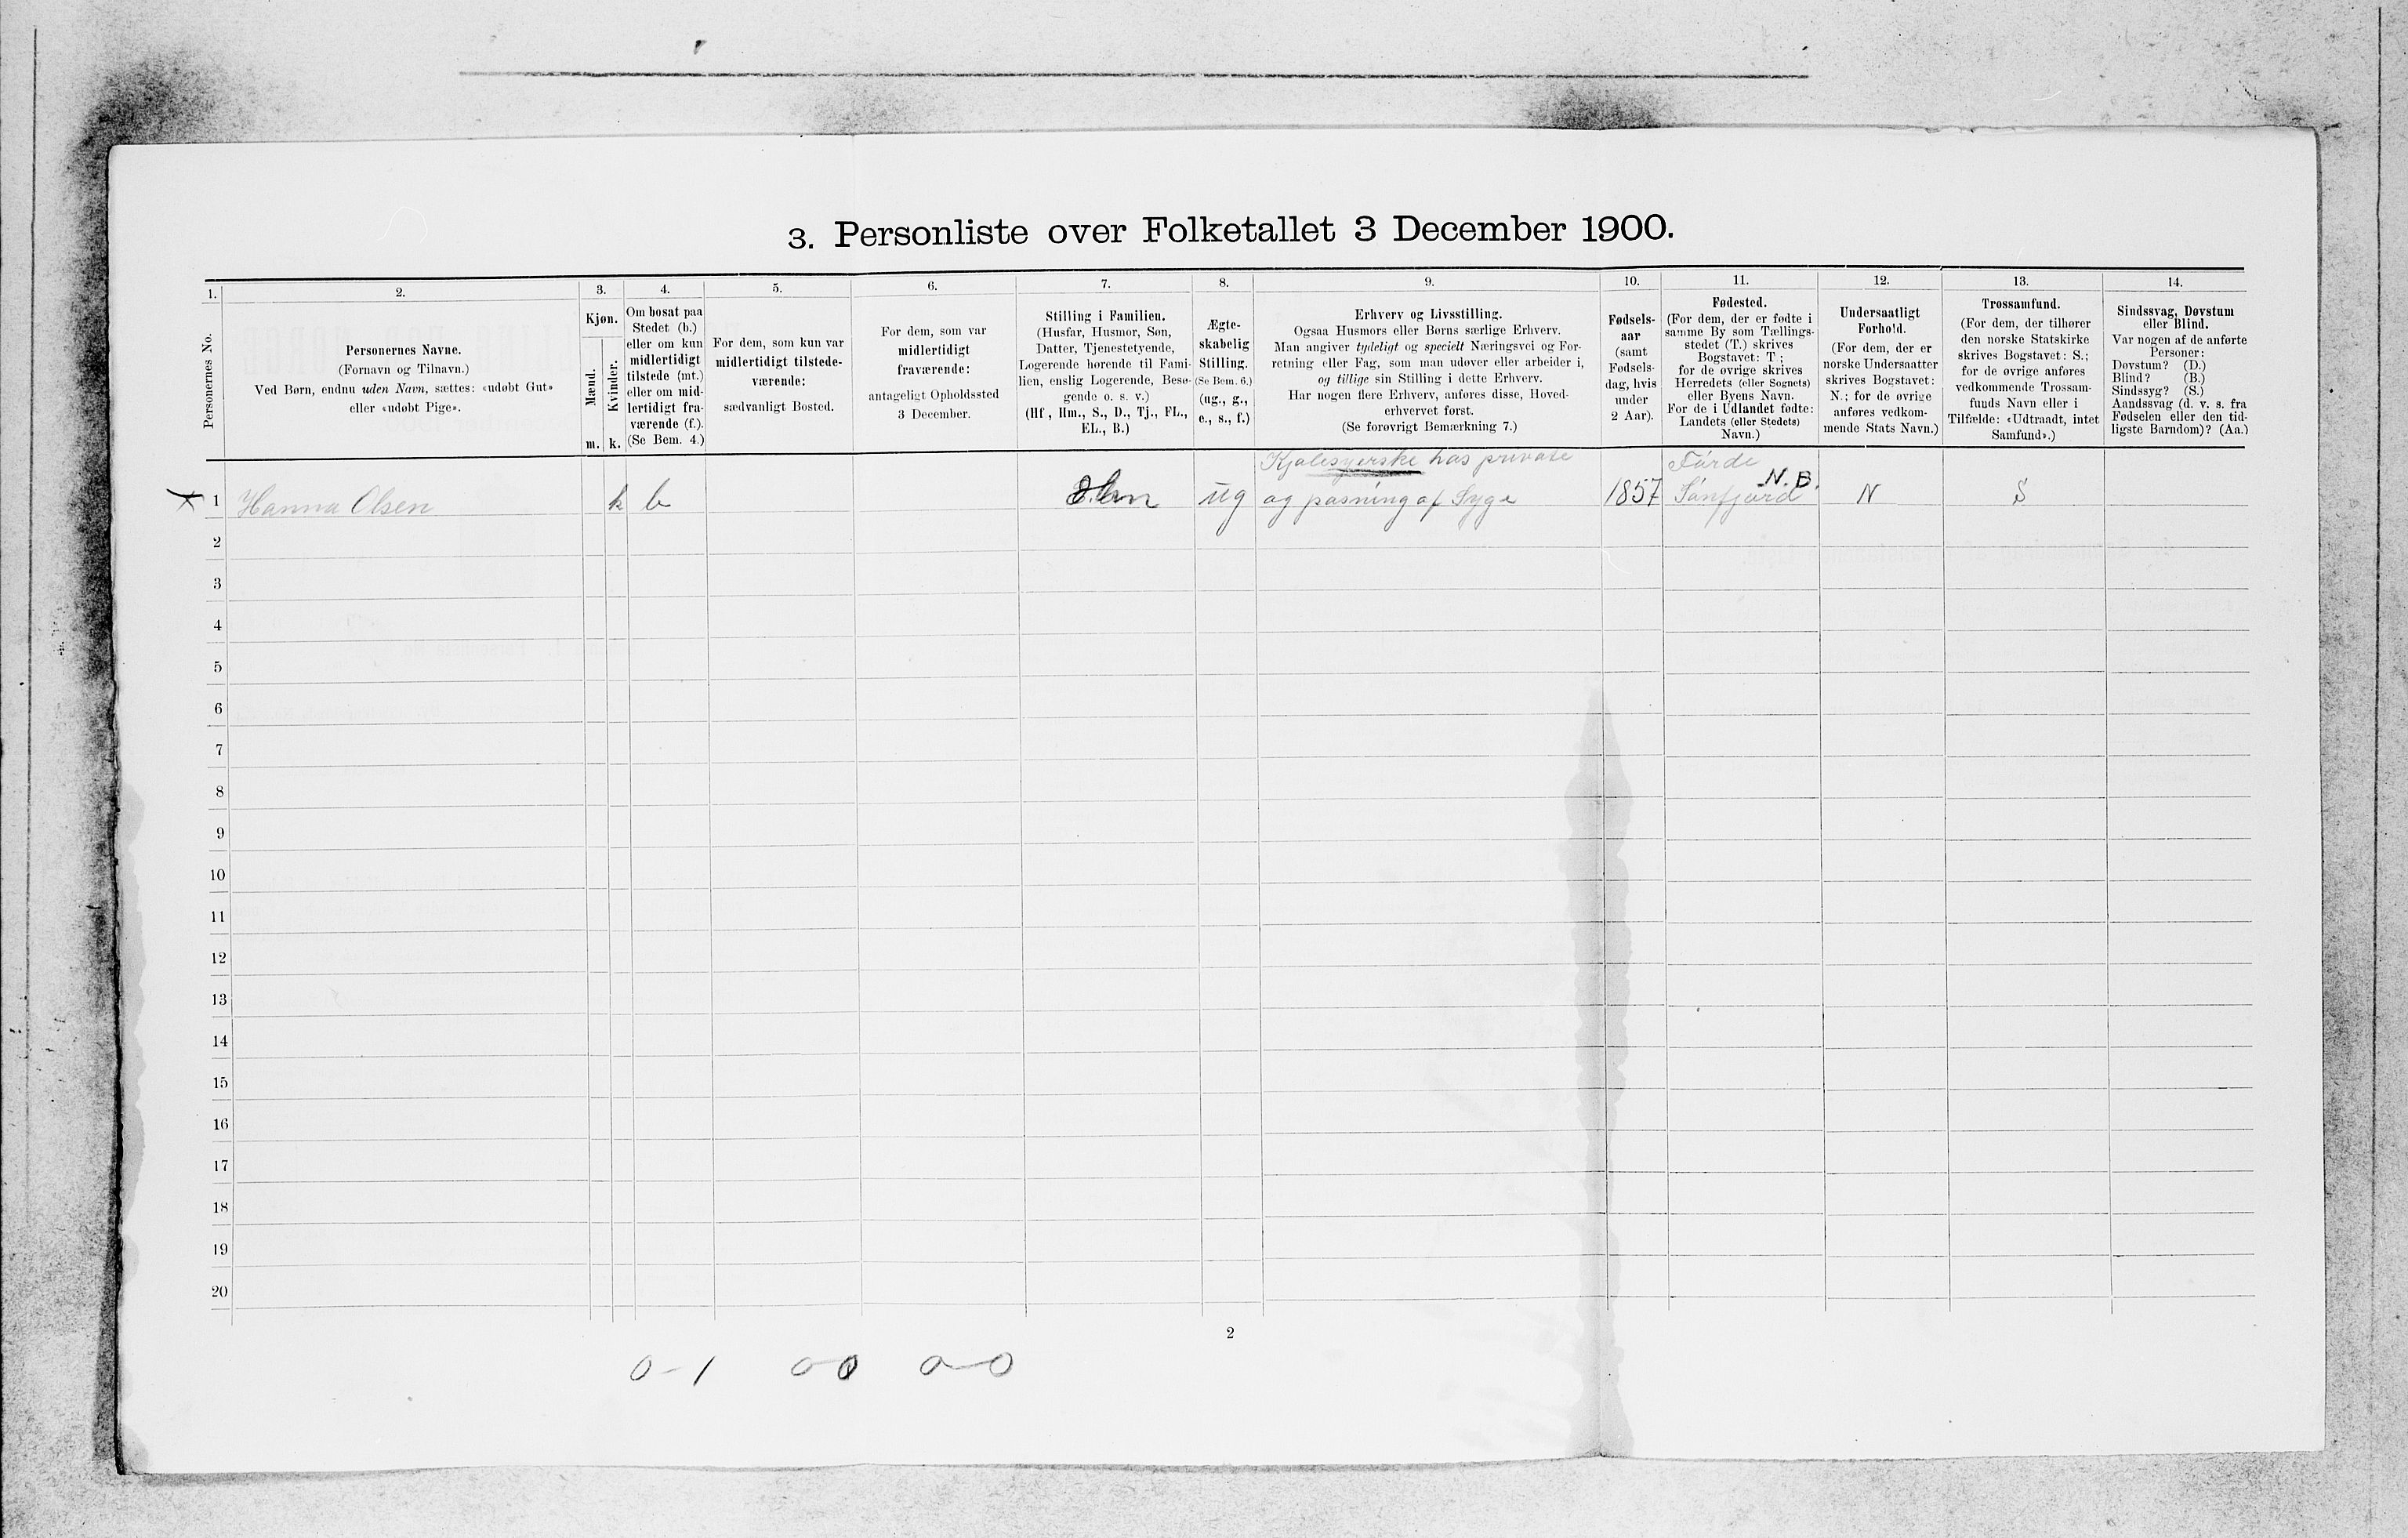 3. Personliste over Folketallet 3 December 1900.
1.
2.
3.
4.
5.
6.
7.
8.
9.
10.
11.
12.
13.
14.
Personernes No.
Personernes Navne.
(Fornavn og Tilnavn.)
Ved Børn, endnu uden Navn, sættes: «udøbt Gut»
eller «udøbt Pige».
Kjøn.
Mænd.
Kvinder.
m. k.
Om bosat paa
Stedet (b.)
eller om kun
midlertidigt
tilstede (mt.)
eller om mid-
lertidigt fra-
værende (f.).
(Se Bem. 4.)
For dem, som kun var
midlertidigt tilstede-
værende:
sædvanligt Bosted.
For dem, som var
midlertidigt
fraværende:
antageligt Opholdssted
3 December.
Stilling i Familien.
(Husfar, Husmor, Søn,
Datter, Tjenestetyende,
Logerende hørende til Fami-
lien, enslig Logerende, Besø-
gende o. s. v.)
(Hf., Hm., S., D., Tj., FL.,
EL., B.)
Ægte-
skabelig
Stilling.
(Se Bem. 6.)
(ug., g.,
e., s., f.)
Erhverv og Livsstilling.
Ogsaa Husmors eller Børns særlige Erhverv.
Man angiver tydeligt og specielt Næringsvei og For-
retning eller Fag, som man udøver eller arbeider i,
og tillige sin Stilling i dette Erhverv.
Har nogen flere Erhverv, anføres disse, Hoved-
erhvervet først.
(Se forøvrigt Bemærkning 7.)
Fødsels-
aar
(samt
Fødsels-
dag, hvis
under
2 Aar).
Fødested.
(For dem, der er fødte i
samme By som Tællings-
stedet (T.) skrives
Bogstavet: T ;
for de øvrige skrives
Herredets (eller Sognets)
eller Byens Navn.
For de i Udlandet fødte:
Landets (eller Stedets)
Navn.)
Undersaatligt
Forhold.
(For dem, der er
norske Undersaatter
skrives Bogstavet:
N.; for de øvrige
anføres vedkom-
mende Stats Navn.)
Trossamfund.
(For dem, der tilhører
den norske Statskirke
skrives Bogstavet: S.;
for de øvrige anføres
vedkommende Trossam-
funds Navn eller i
Tilfælde: «Udtraadt, intet
Samfund».)
Sindssvag, Døvstum
eller Blind.
Var nogen af de anførte
Personer:
Døvstum? (D.)
Blind? (B.)
Sindssyg? (S.)
Aandssvag (d. v. s. fra
Fødselen eller den tid-
ligste Barndom)? (Aa.)
Kjolesyerske hos private Førde
1 Hanna Olsen k b ug og pasning af Syge 1857 Sønfjord N. B. N S
2
3
4
5
6
7
8
9
10
11
12
13
14
15
16
17
18
19
20
2
0-1 00 0-0